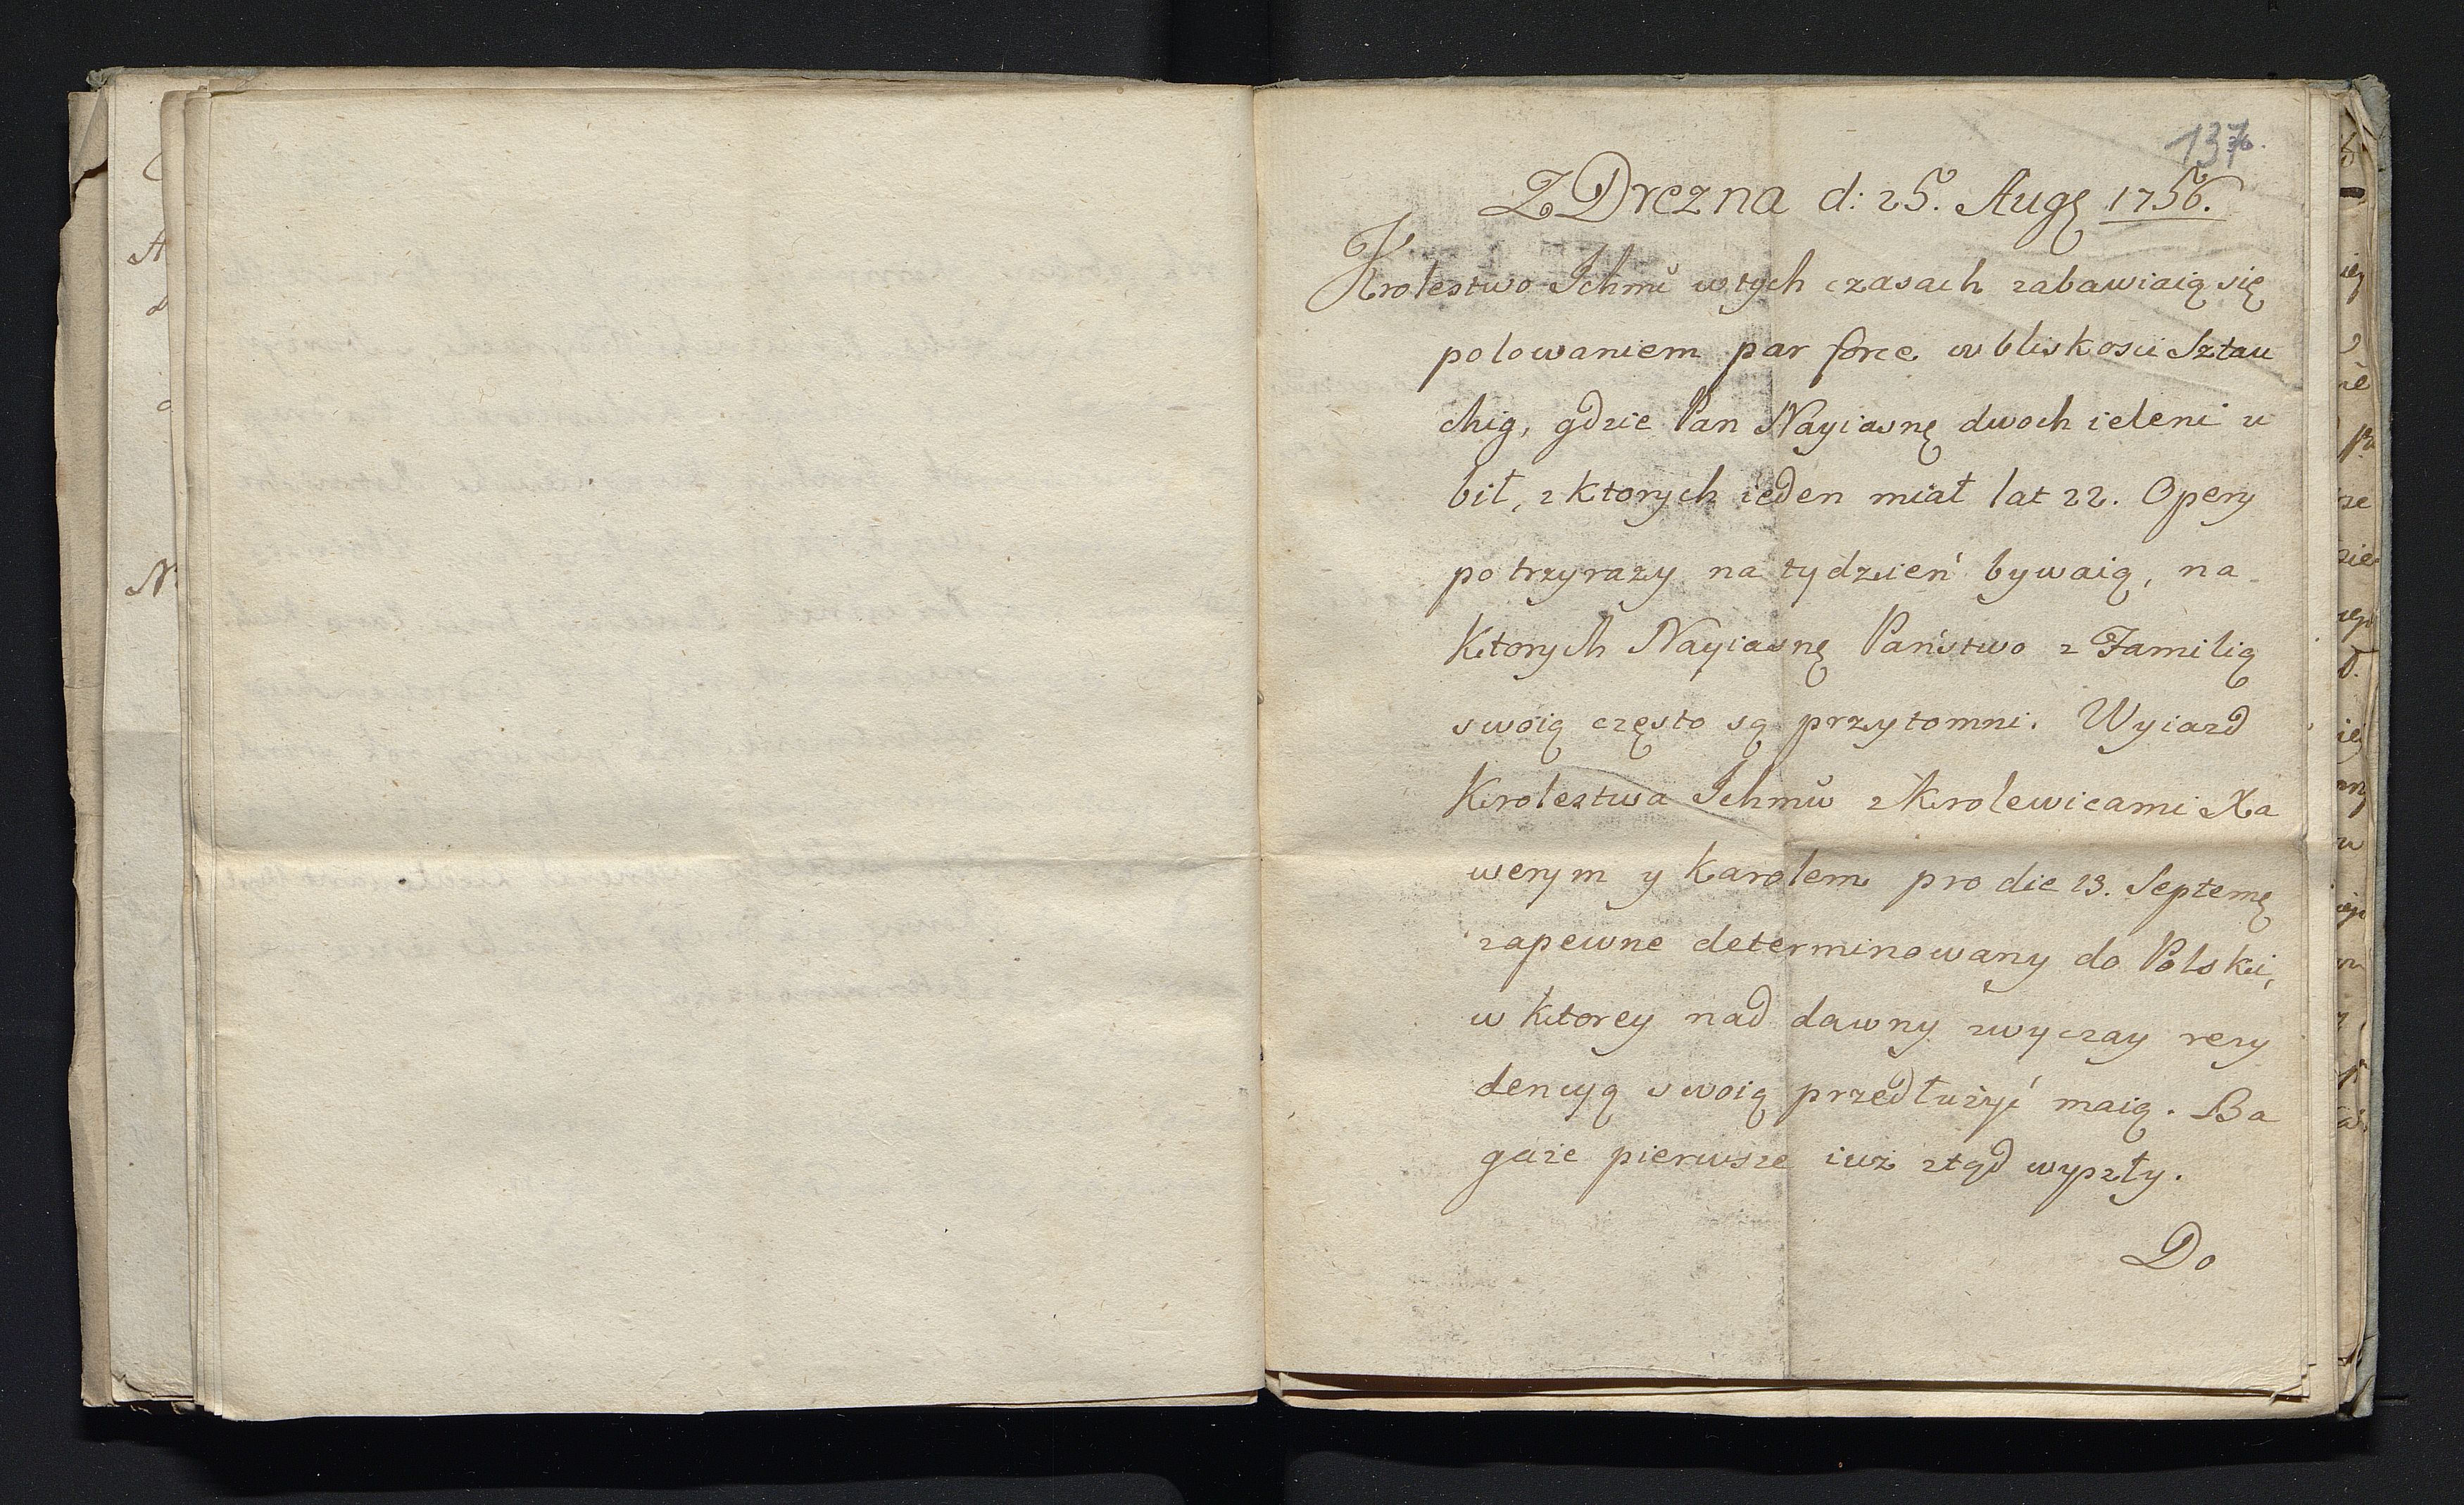 137
Z Drezna d: 25. Augę 1756.
Krolestwo Ichmć w tych czasach zabawiaią się
polowaniem par force w bliskosci Sztau
chig, gdzie Pan Nayiasnę dwoch ieleni u
bił, z ktorych ieden miał lat 22. Opery
po trzy razy na tydzień bywaią, na
ktorych Nayiasnę Państwo z Familią
swoią często są przytomni. Wyiazd
Krolestwa Ichmćw z Krolewicami Xa
werym y Karolem pro die 13. Septemę
zapewne determinowany do Polski,
w ktorey nad dawny zwyczay rezy
dencyą swoią przedłużyć maią. Ba
gaże pierwsze iuż ztąd wyszły.
Do